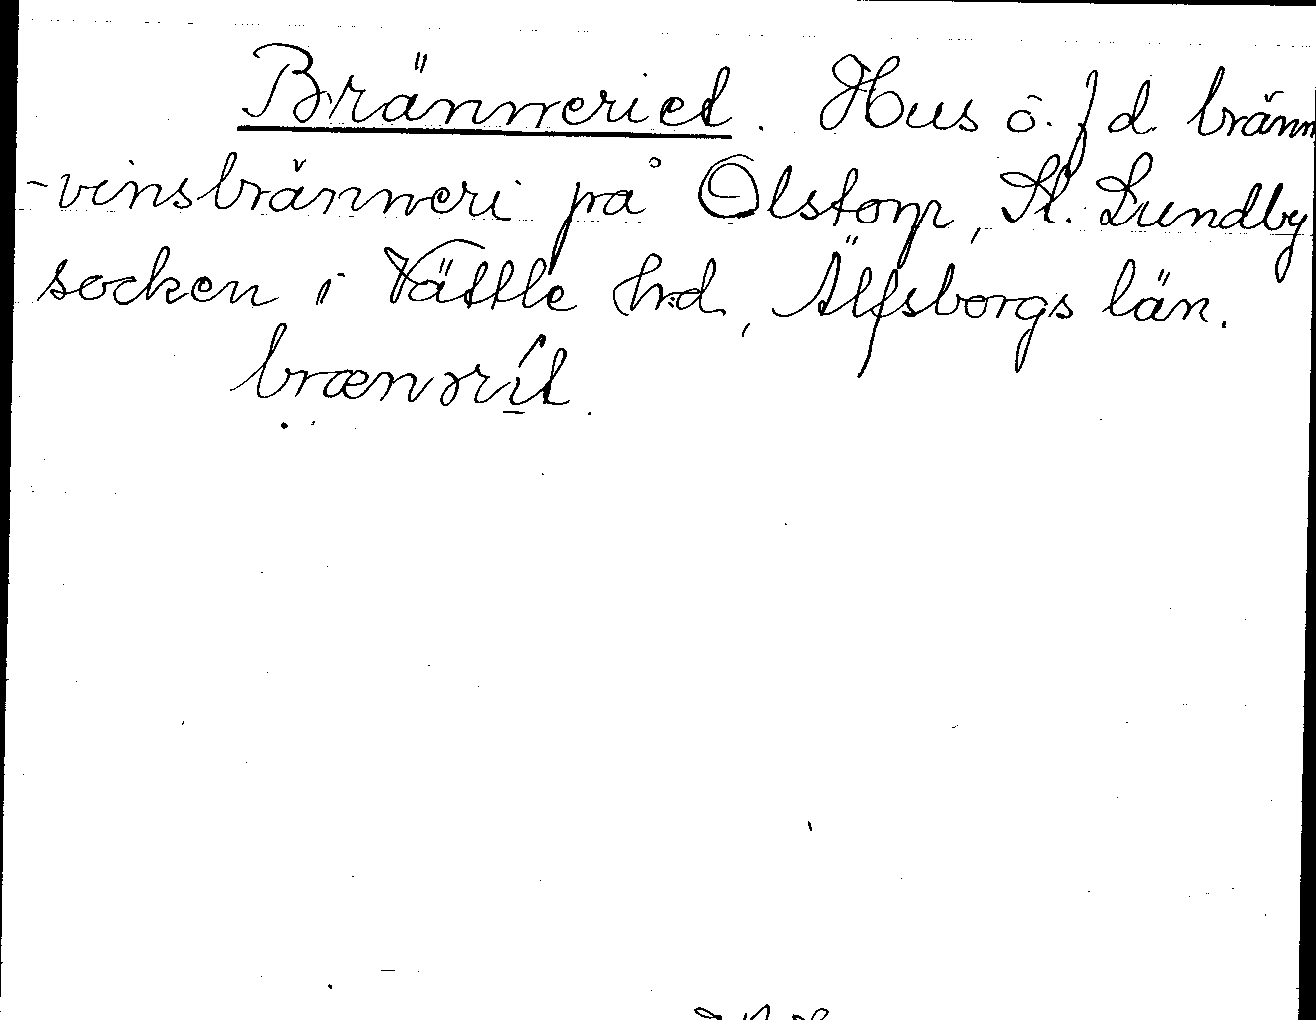 Bränneriet. Hus o. f d. bränn
-vinsbränneri på Olstorp, St. Lundby
socken i Vättle hd, Älfsborgs län.
brænərít